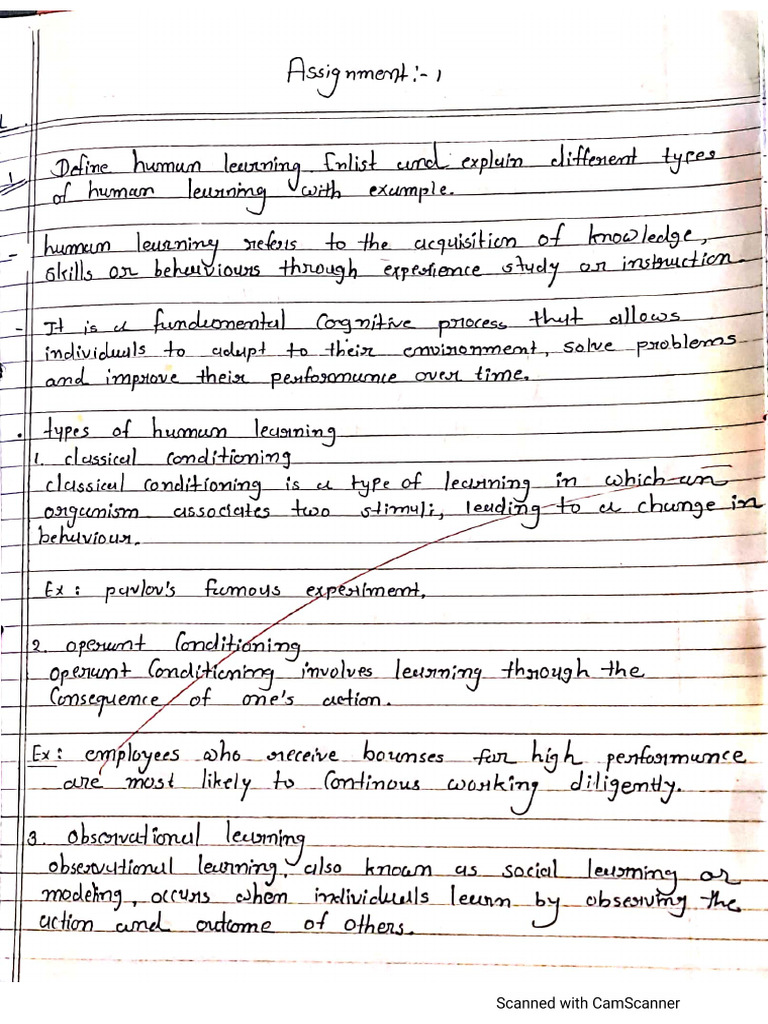 Assignment:- 1
1 Define human learning. Enlist and explain different types
of human learning with example.
- human learning refers to the acquisition of knowledge,
skills or behaviours through experience study or instruction.
- It is a fundemental cognitive process that allows
individuals to adapt to their environment, solve problems
and improve their performance over time.
• types of human learning
1. classical conditioning
classical conditioning is a type of learning in which an
organism associates two stimuli, leading to a change in
behaviour.
Ex: pavlov's famous experiment.
2. operant Conditioning
operant Conditioning involves learning through the
Consequence of one's action.
Ex: employees who receive bounses for high performance
are most likely to Continous working diligently.
3. observational learning
observational learning, also known as social learning or
modeling, occurs when individuals learn by observing the
action and outcome of others.
Scanned with CamScanner